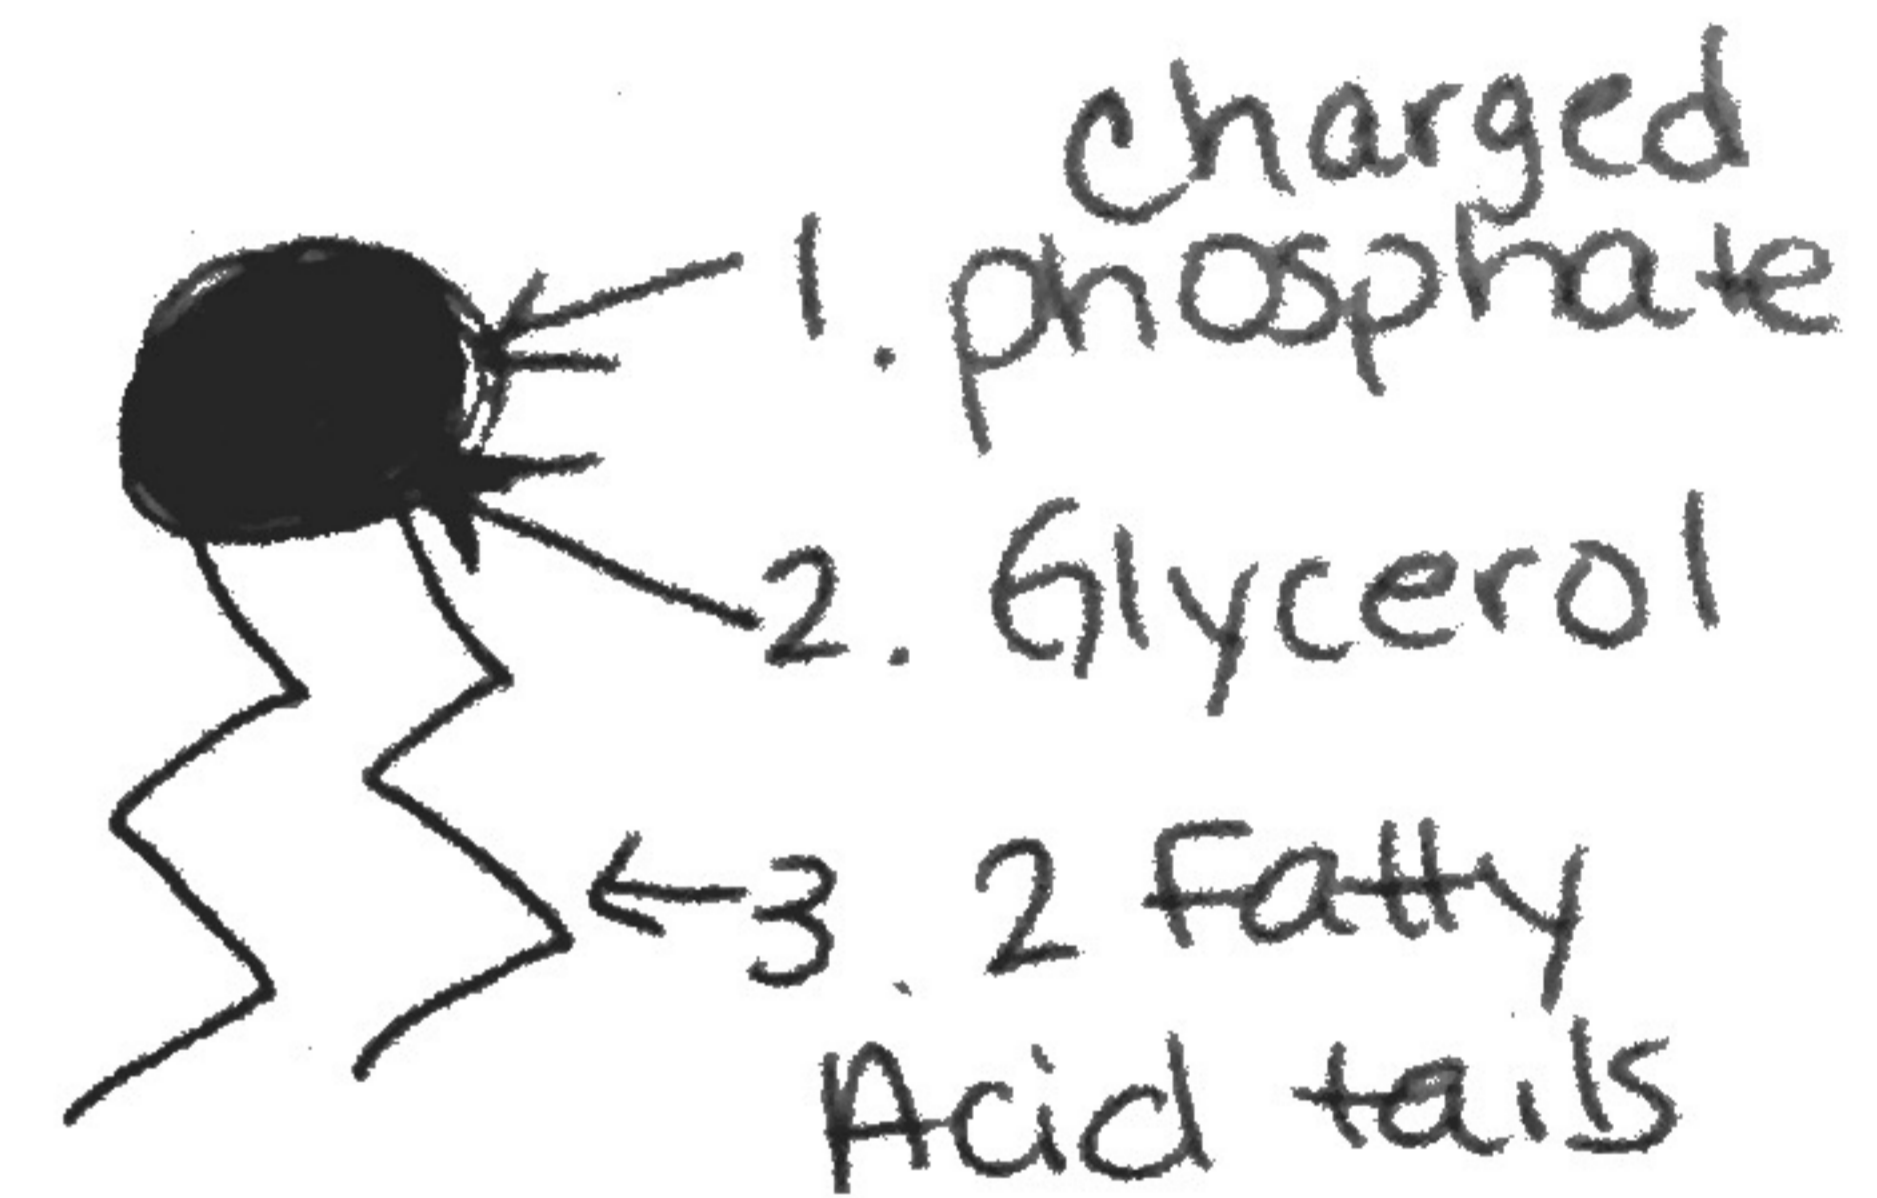 charged
1. phosphate
2. Glycerol
3. 2 Fatty
Acid tails